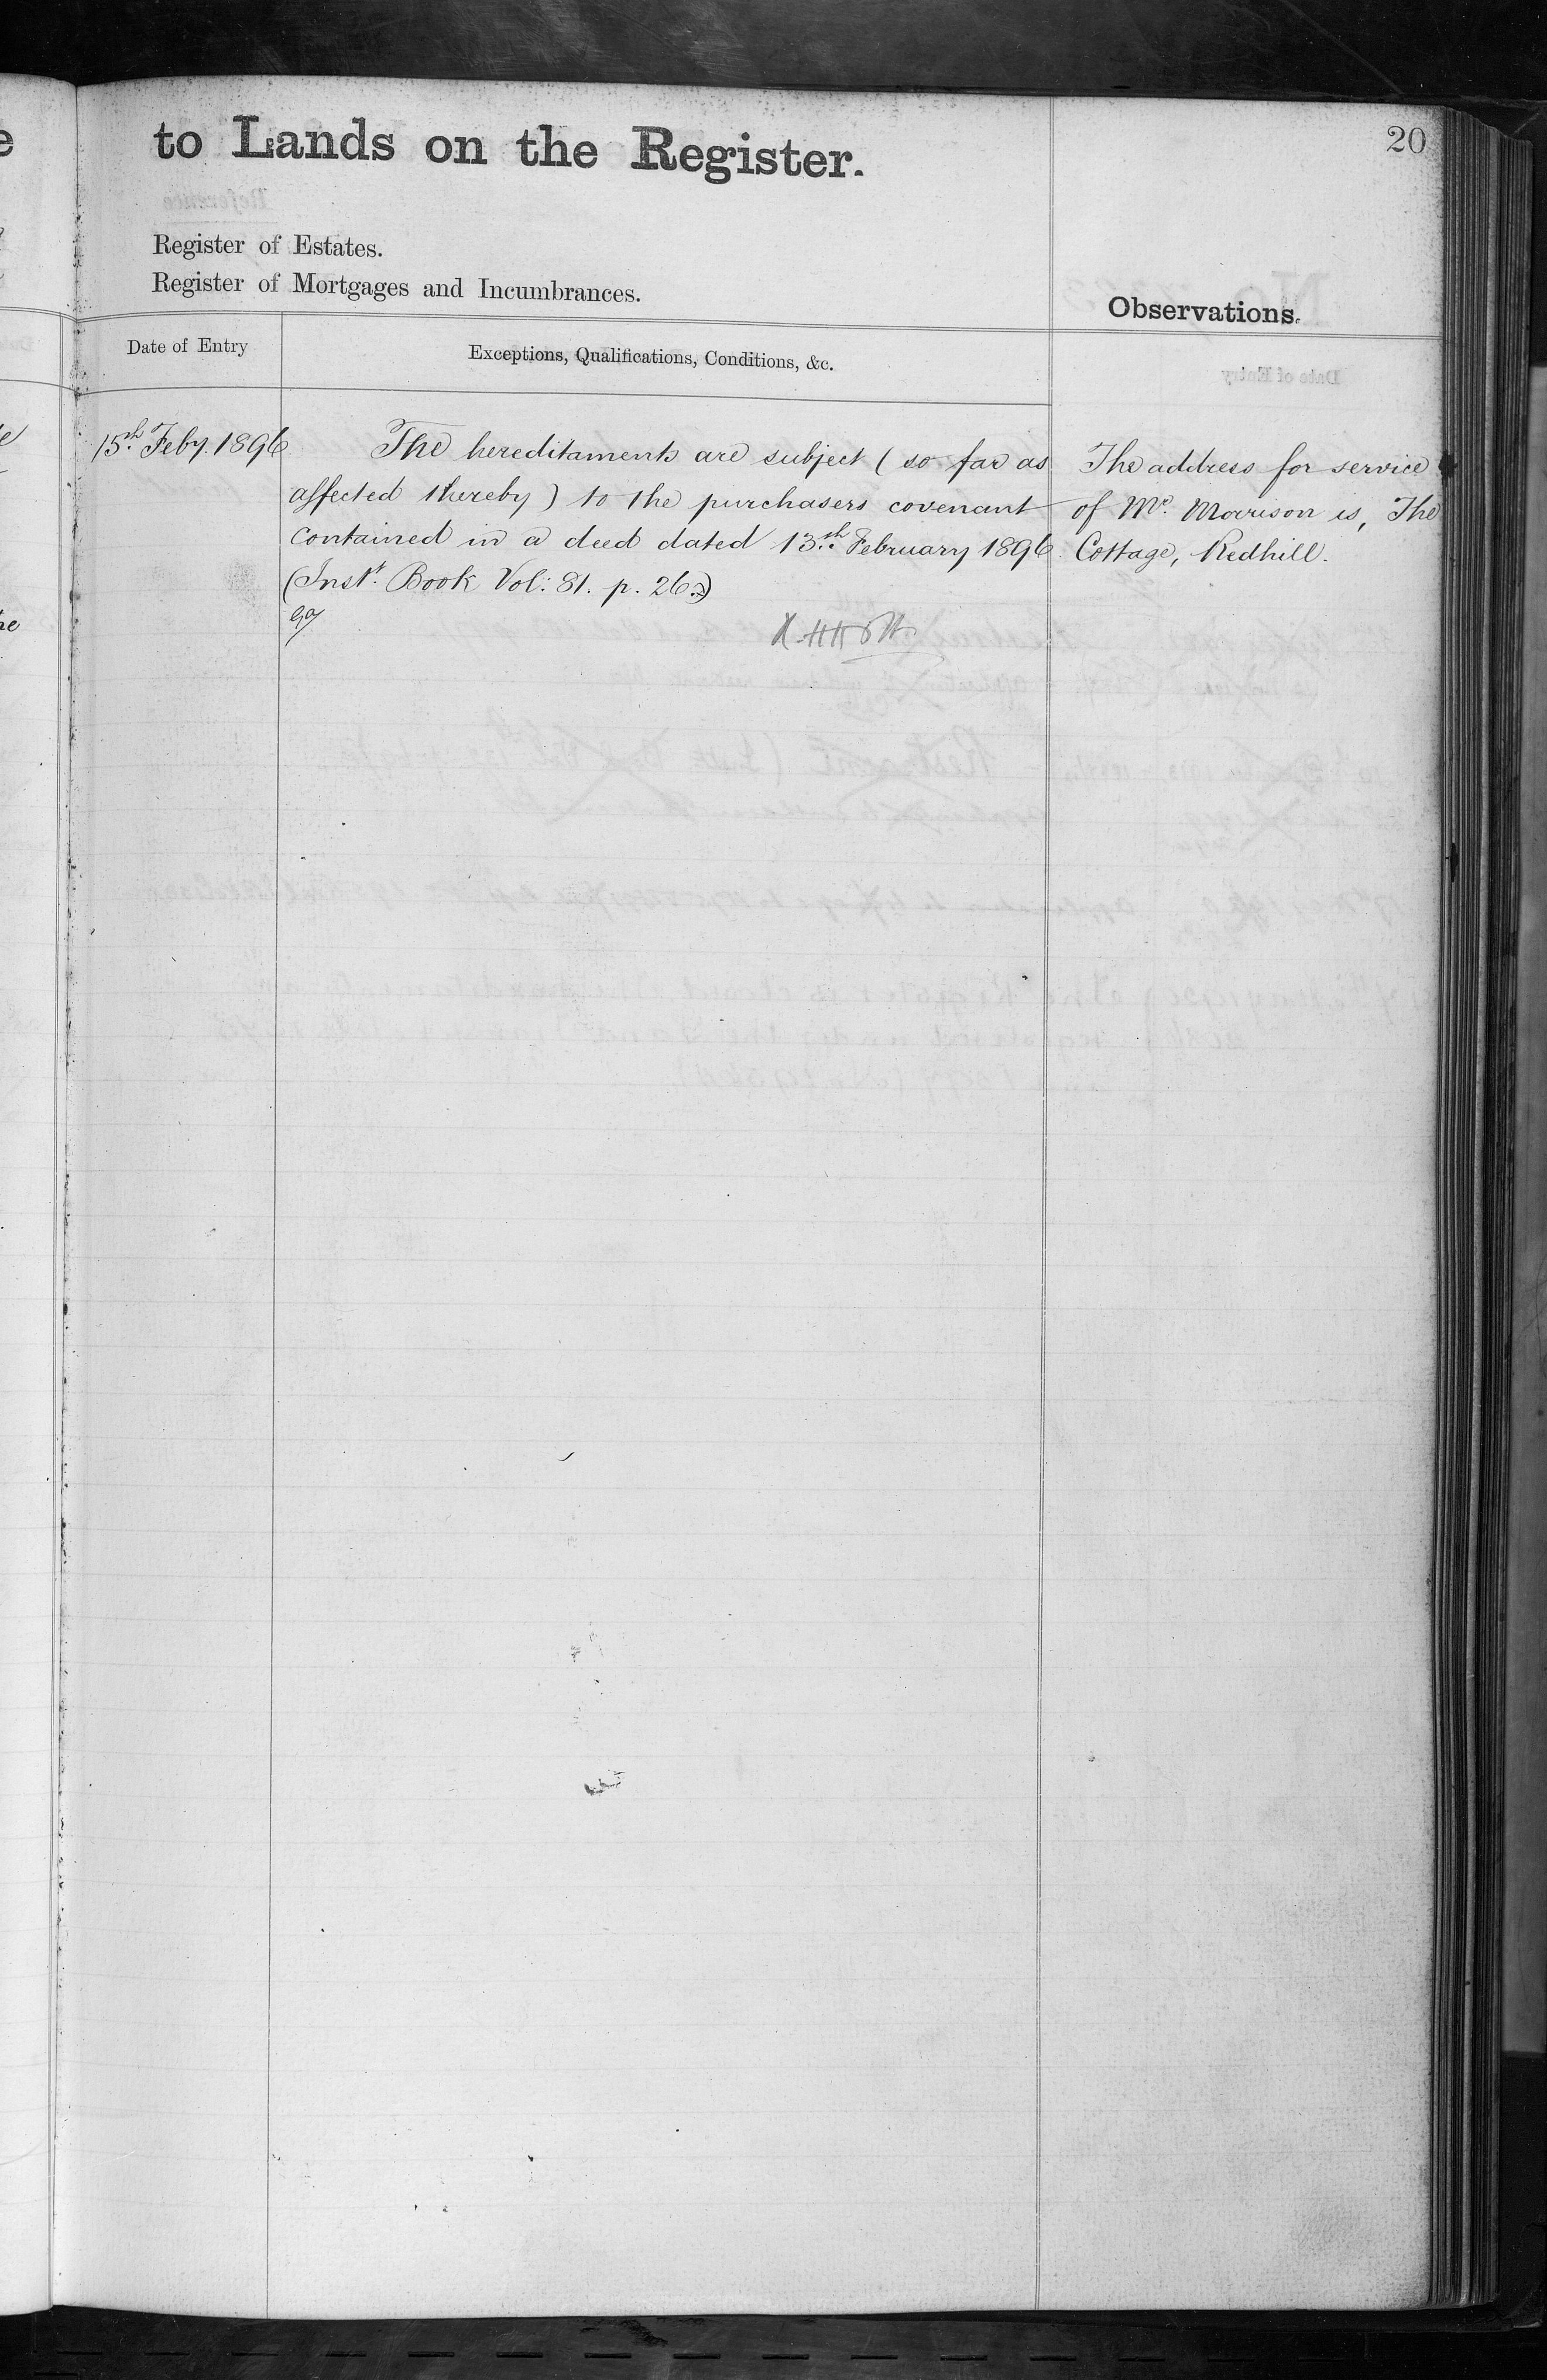 20
to Lands on the Register.
Register of Estates.
Register of Mortgages and Incumbrances.
Observations.
Date of Entry
Exceptions, Qualifications, Conditions, &c.
15th Feby. 1896
The hereditaments are subject (so far as
affected thereby) to the purchasers covenant
contained in a deed dated 13th February 1896
(Inst. Book Vol: 81. p. 26.)
The address for service
of Mr. Morrison is, The
Cottage, Redhill.